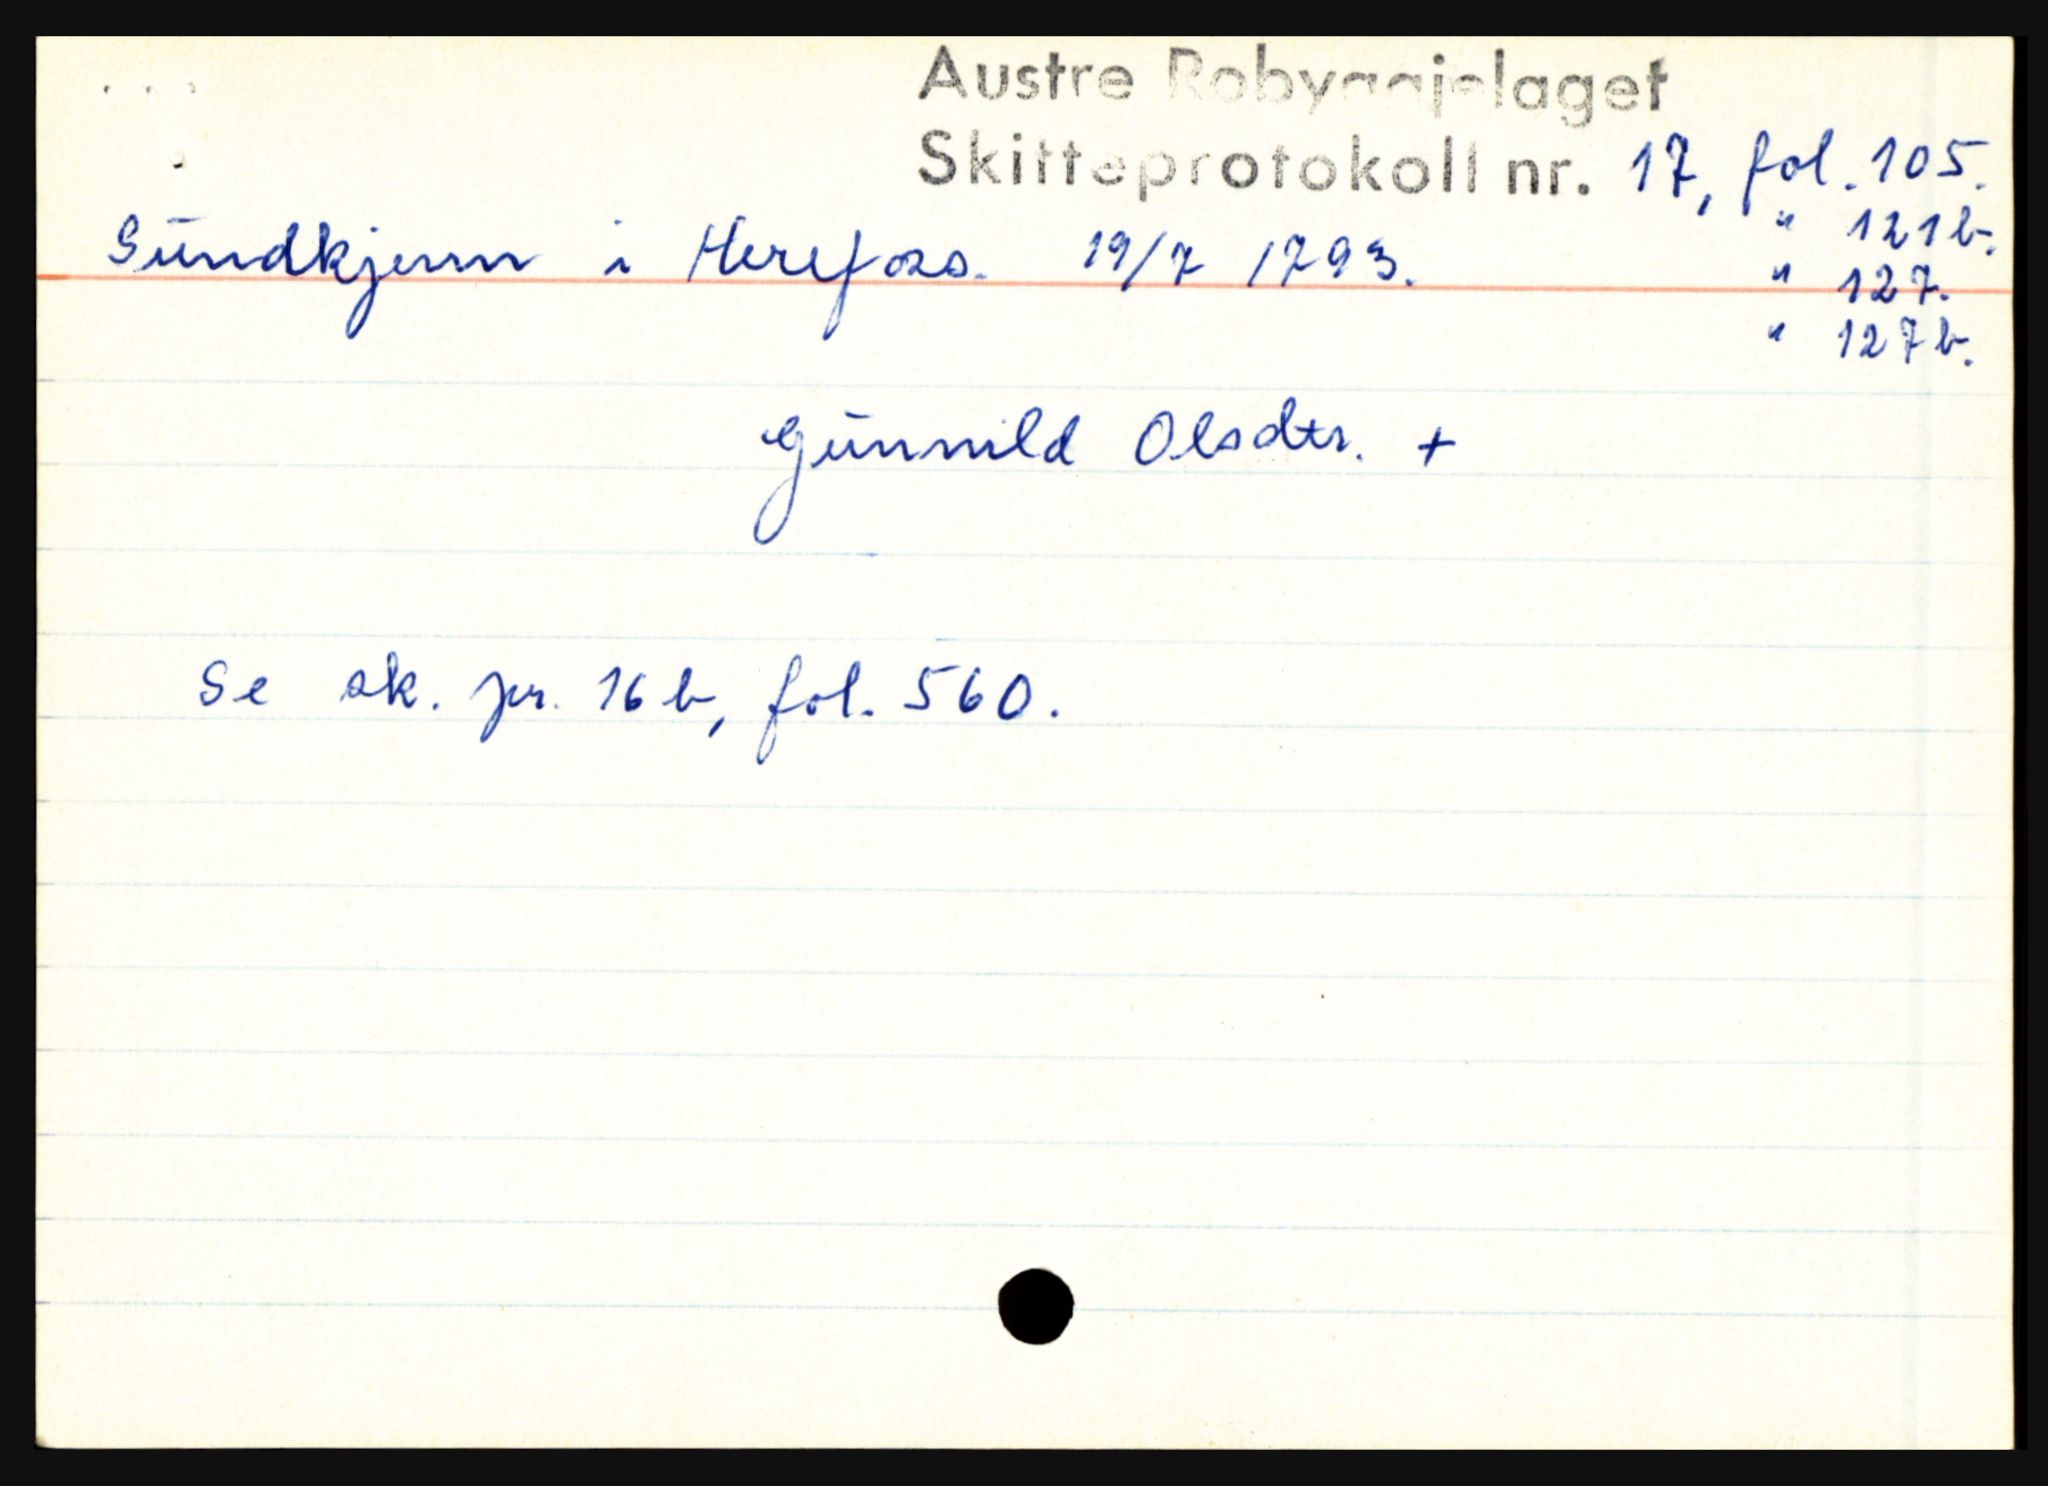 Austre Robyggjelaget
Skifteprotokoll nr. 17, fol. 105.
" 121b.
Sundkjenn i Herefoss. 19/7 1793.
" 127.
" 127b.
Gunnild Olsdtr. +
Se sk. pr. 16b, fol. 560.